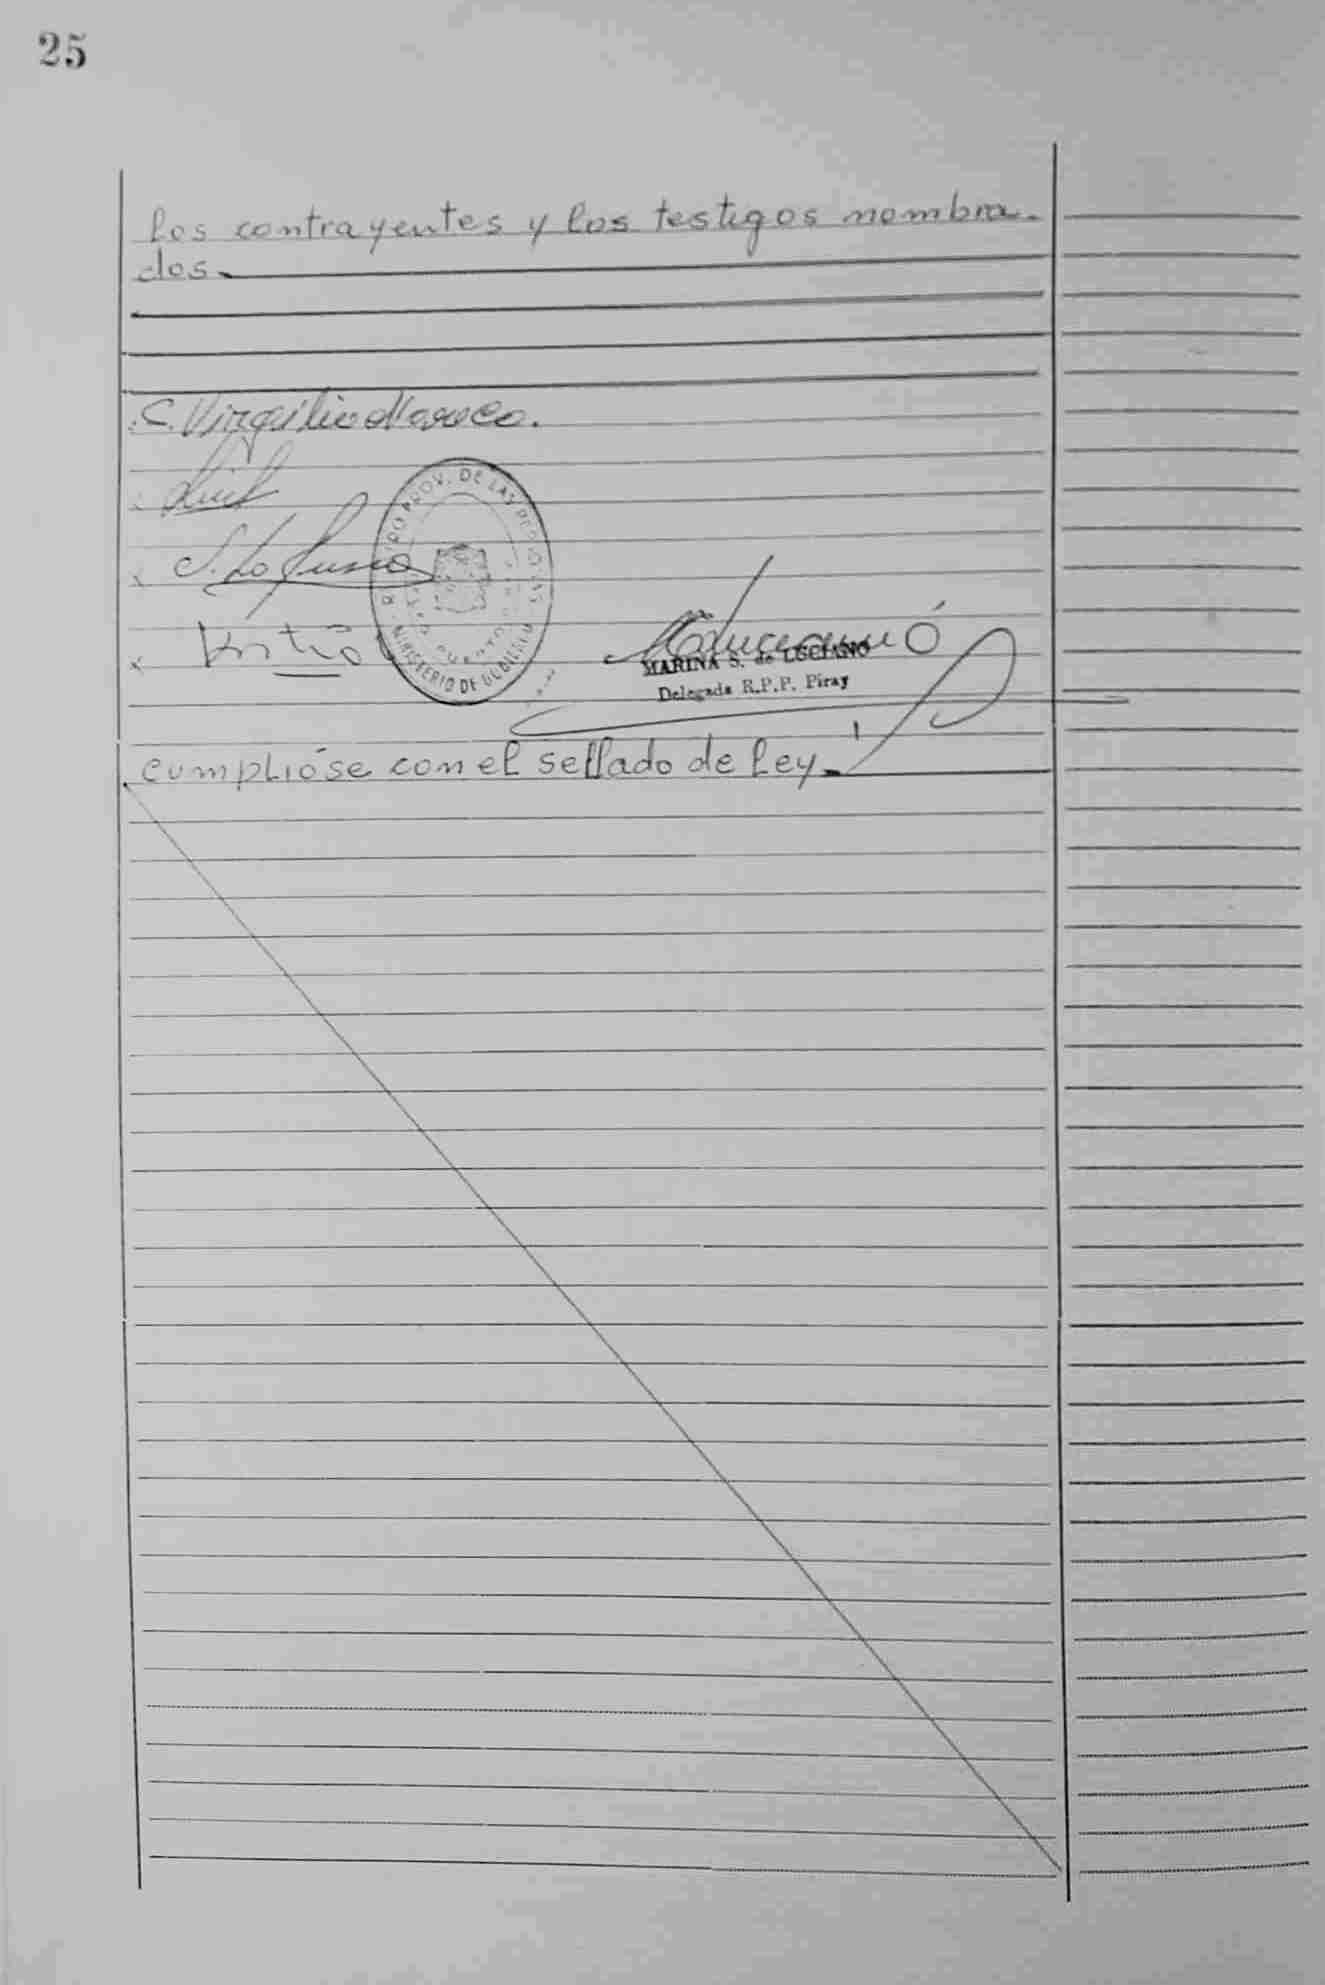 25
los contrayentes y los testigos nombra-
dos.
C. Virgilio
PROV. DE LAS PERSONAS
MINISTERIO DE GOBIERNO
PUERTO
MARINA S. de LUCIANO
Delegada R.P.P. Piray
cumplióse con el sellado de Ley.